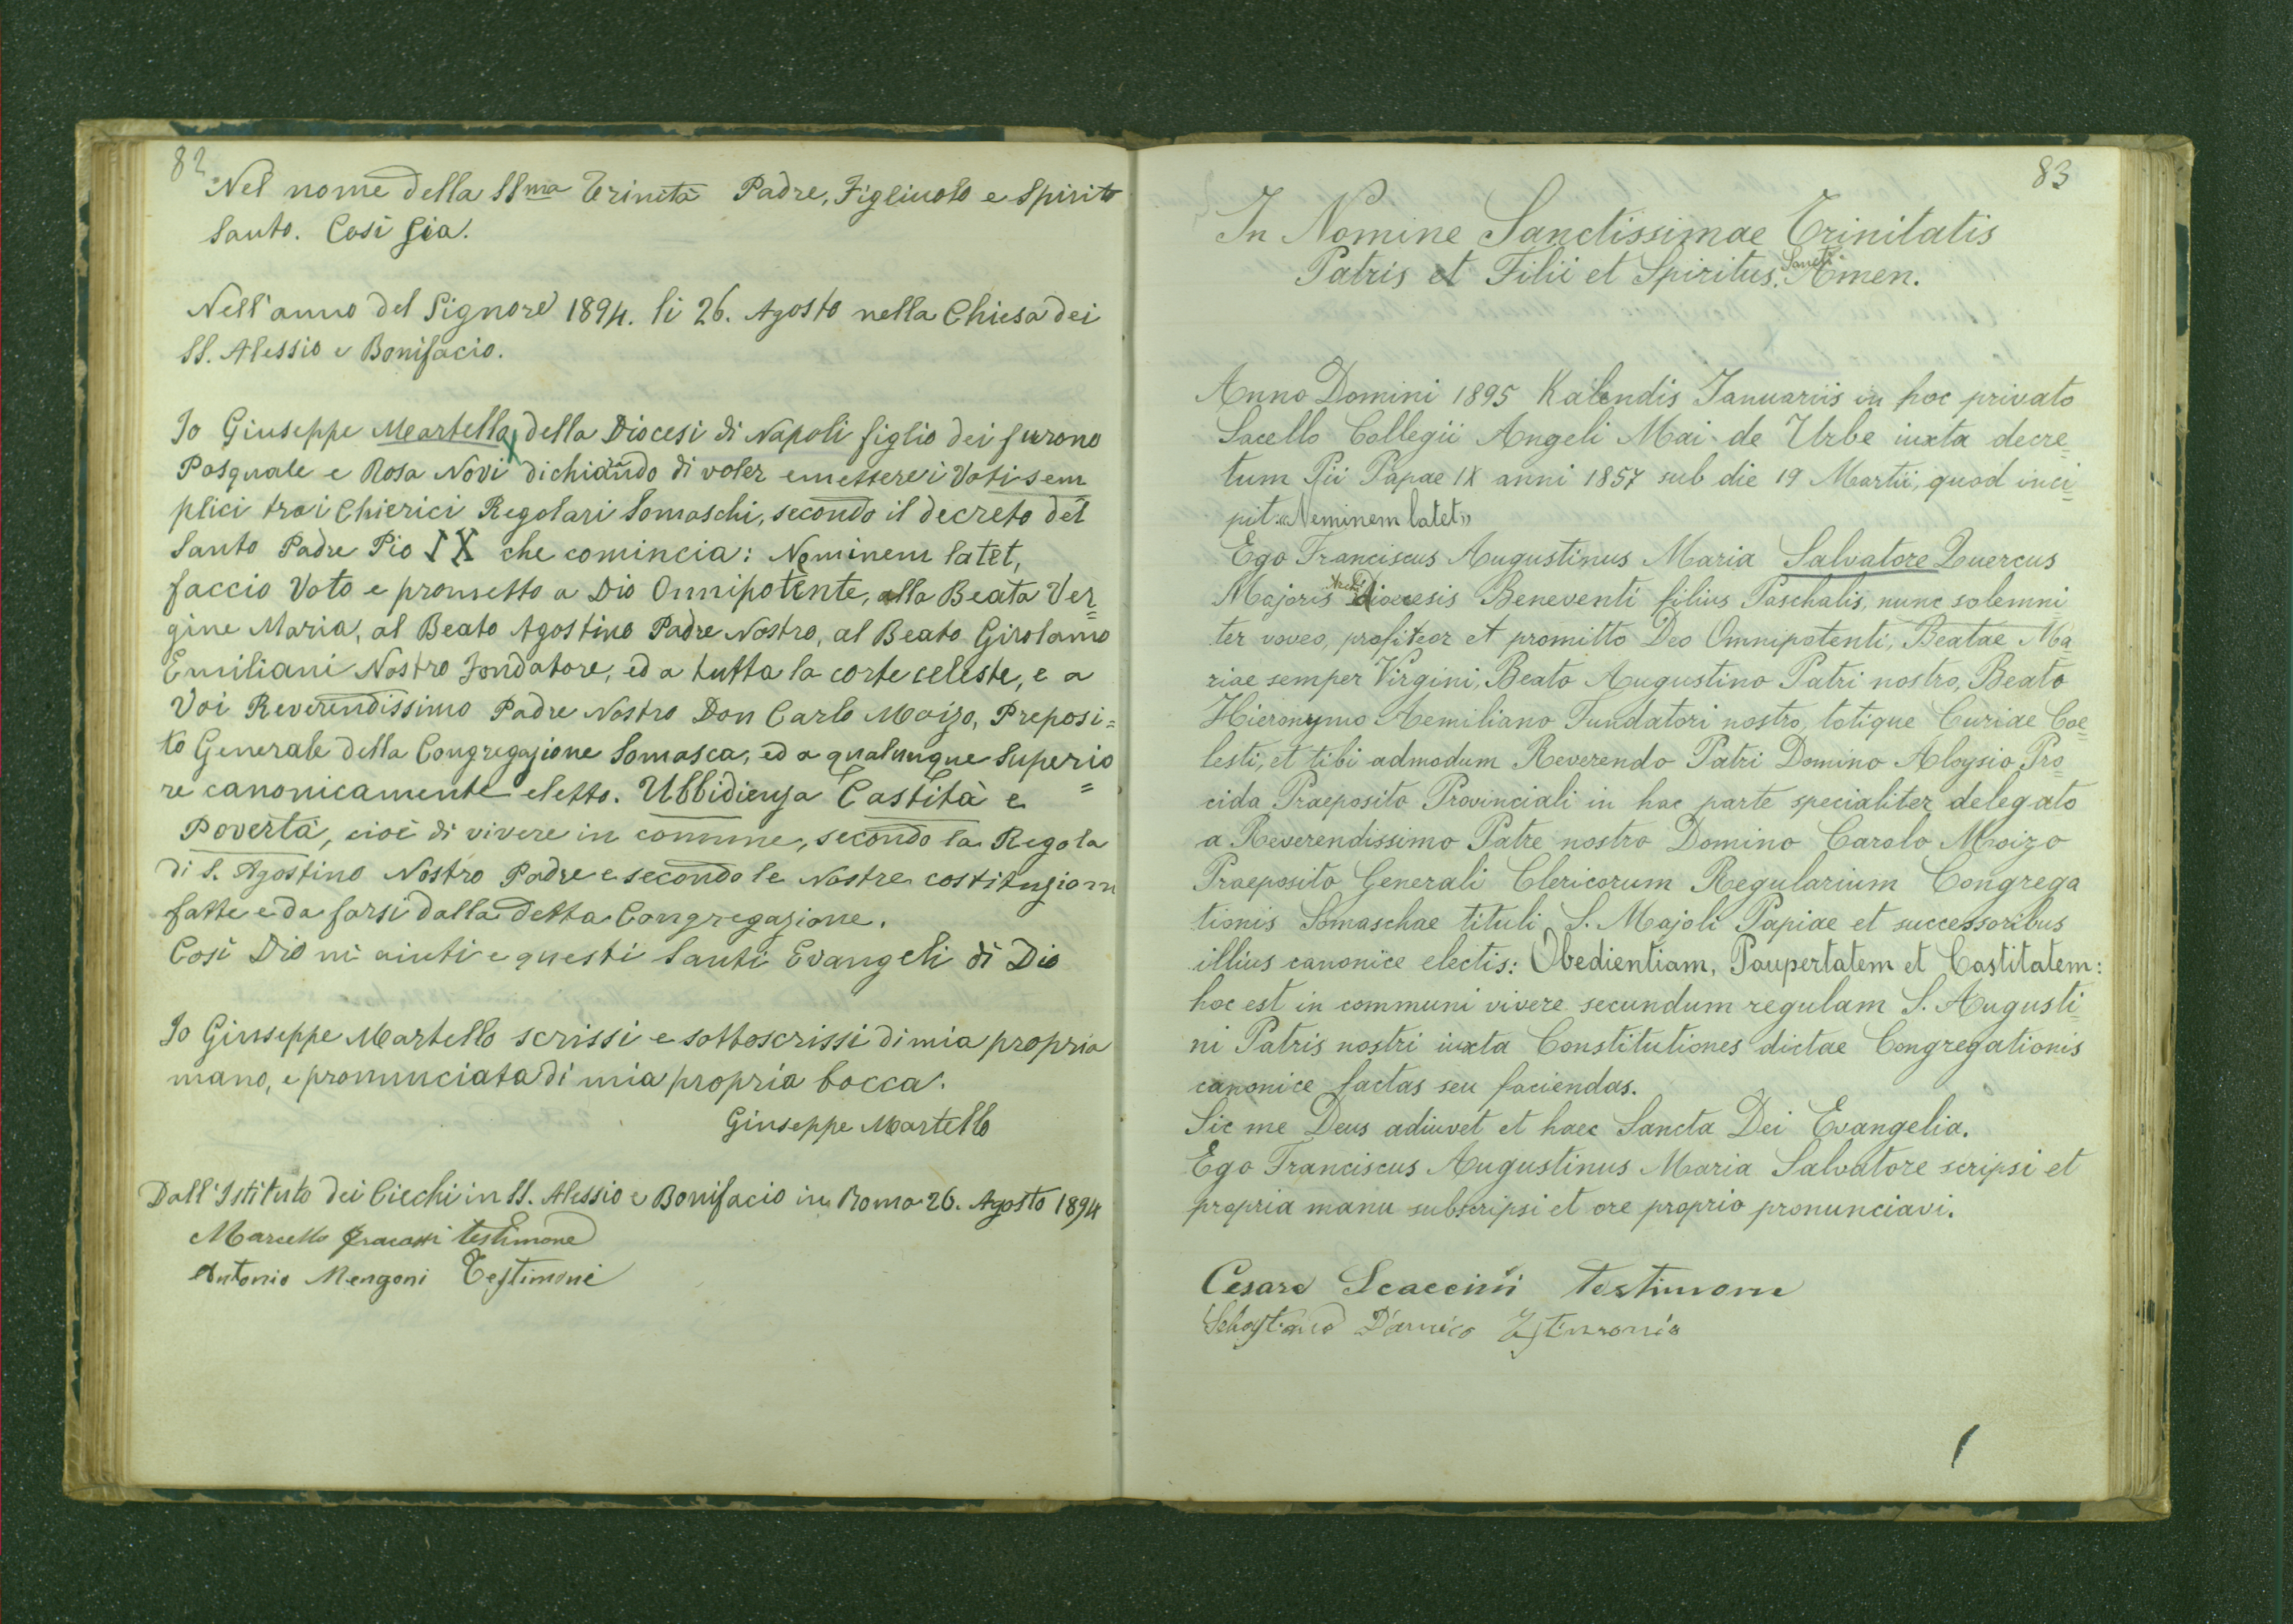 82
Nel nome della SSma Trinità Padre, Figliuolo e Spirito
Santo. Così sia.
Nell'anno del Signore 1894. li 26. Agosto nella Chiesa dei
SS. Alessio e Bonifacio.
Io Giuseppe Martello, della Diocesi di Napoli figlio dei furono
Pasquale e Rosa Novi dichiando di voler emettere i Voti sem
plici tra i Chierici Regolari Somaschi, secondo il decreto del
Santo Padre Pio IX che comincia: Neminem latet,
faccio Voto e prometto a Dio Onnipotente, alla Beata Ver=
gine Maria, al Beato Agostino Padre Nostro, al Beato Girolamo
Emiliani Nostro Fondatore, ed a tutta la corte celeste, e a
Voi Reverendissimo Padre Nostro Don Carlo Moizo, Preposi=
to Generale della Congregazione Somasca, ed a qualunque Superio=
re canonicamente eletto. Ubbidienza Castità e
Povertà, cioè di vivere in comune, secondo la Regola
di S. Agostino Nostro Padre e secondo le Nostre costituzioni
fatte e da farsi dalla detta Congregazione.
Così Dio mi aiuti e questi Santi Evangeli di Dio
Io Giuseppe Martello scrissi e sottoscrissi di mia propria
mano, e pronunciata di mia propria bocca.
Giuseppe Martello
Dall'Istituto dei Ciechi in SS. Alessio e Bonifacio in Roma 26. Agosto 1894
Marcello testimone
Antonio Mengoni Testimoni
83
In Nomine Sanctissimae Trinitatis
Patris et Filii et Spiritus Sancti. Amen.
Anno Domini 1895 Kalendis Januariis in hoc privato
Sacello Collegii Angeli Mai de Urbe iuxta decre=
tum Pii Papae IX anni 1857 sub die 19 Martii, quod inci=
pit «Neminem latet»
Ego Franciscus Augustinus Maria Salvatore Quercus
Majoris Archidioecesis Beneventi filius Paschalis, nunc solemni
ter voveo, profiteor et promitto Deo Omnipotenti, Beatae Ma
riae semper Virgini, Beato Augustino Patri nostro, Beato
Hieronymo Aemiliano Fundatori nostro, totique Curiae Coe=
lesti, et tibi admodum Reverendo Patri Domino Aloysio Pro=
cida Praeposito Provinciali in hac parte specialiter delegato
a Reverendissimo Patre nostro Domino Carolo Moizo
Praeposito Generali Clericorum Regularium Congrega
tionis Somaschae tituli S. Majoli Papiae et successoribus
illius canonice electis: Obedientiam, Paupertatem et Castitatem:
hoc est in communi vivere secundum regulam S. Augusti=
ni Patris nostri iuxta Constitutiones dictae Congregationis
canonice factas seu faciendas.
Sic me Deus adiuvet et haec Sancta Dei Evangelia.
Ego Franciscus Augustinus Maria Salvatore scripsi et
propria manu subscripsi et ore proprio pronunciavi.
Cesare Scaccini testimone
Sebastiano D'Amico